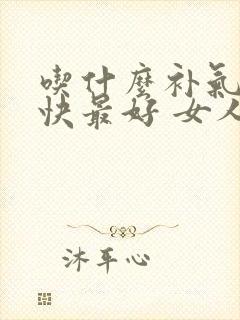 喫什麼补氣
快最好 女人
沐平心